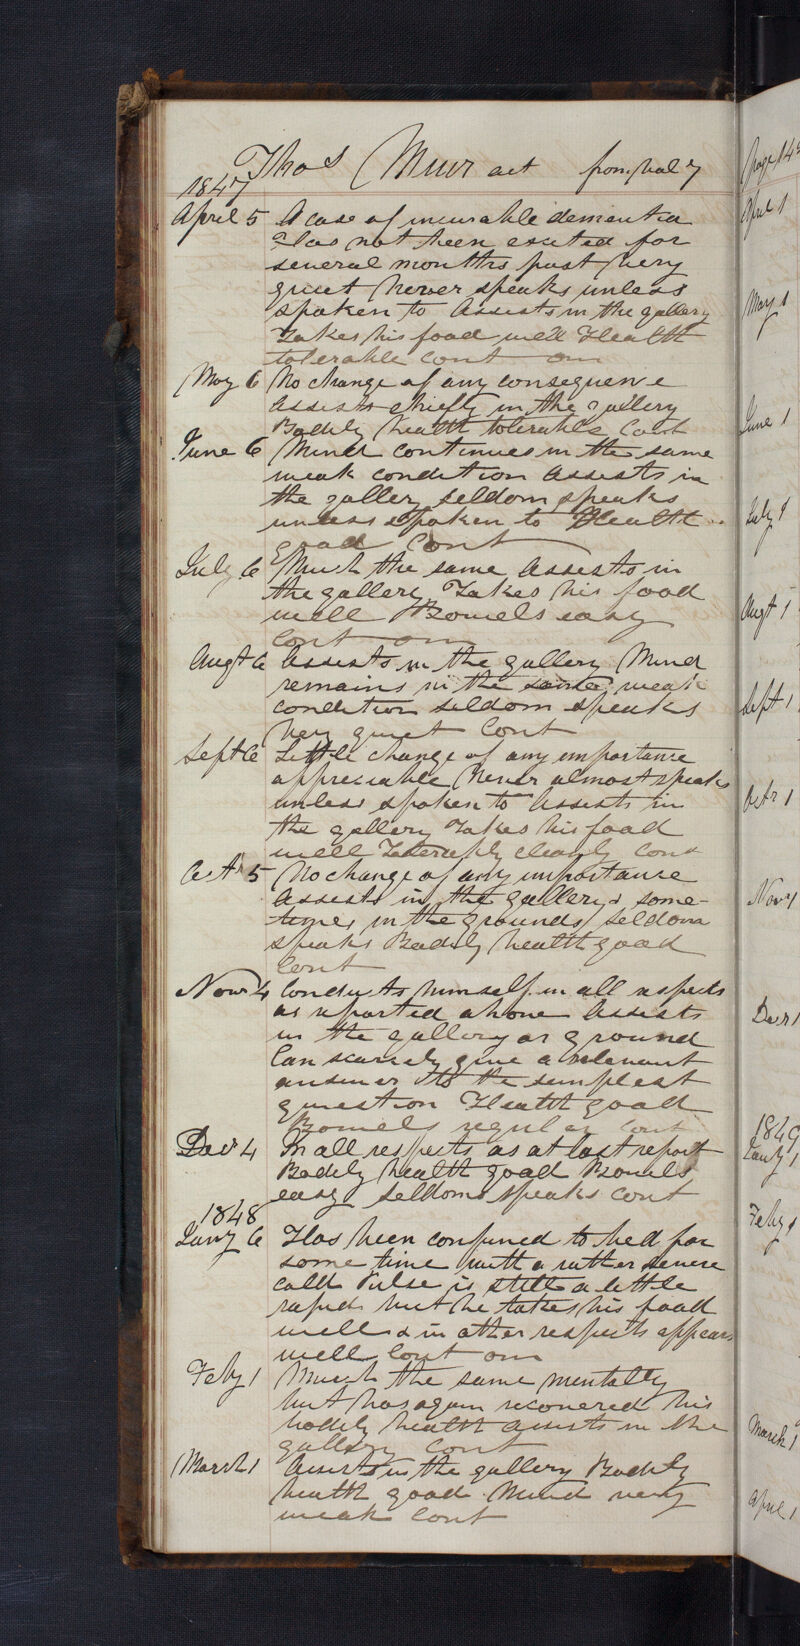 Thos Muir aet from fol 7
1847
April 5 A case of incurable dementia
Has not been excited for
several months past very
quiet Never speaks unless
spoken to Assists in the gallery
Takes his food well Health
tolerable Cont om
May 6 No change of any consequence
assists chiefly in the gallery
Bodily health tolerable Cont
June 6 Mind continues in the same
weak condition Assists in
the gallery seldom speaks
unless spoken to Health
good Cont
July 6 Much the same Assists in
the gallery Takes his food
well Bowels easy
Cont om
Augt 6 Assists in the gallery Mind
remains in the same weak
condition seldom speaks
Very quiet Cont
Sept 6 Little change of any importance
appreciable Never almost speaks
unless spoken to Assists in
the gallery Takes his food
well Tolerably cleanly Cont
Oct 5 No change of any importance
Assists in the gallery & some-
times in the grounds Seldom
speaks Bodily health good
Cont
Novr 4 Conducts himself in all respects
as reported above Assists
in the gallery or ground
Can scarcely give a relevant
answer to the simplest
question Health good
Bowels regular Cont
Decr 4 In all respects as at last report
Bodily health good Bowels
easy Seldom speaks Cont
1848
Jany 6 Has been confined to bed for
some time with a rather severe
cold Pulse is still a little
rapid but he takes his food
well & in other respects appears
well Cont om
Feby 1 Much the same mentally
but has again recovered his
bodily health assists in the
gallery Cont
March 1 Assists in the gallery Bodily
health good Mind very
weak Cont
page 14
April 1
May 1
June 1
July 1
Augt 1
Sept 1
Octr 1
Novr 1
Decr 1
1849
Jany 1
Feby 1
March 1
April 1